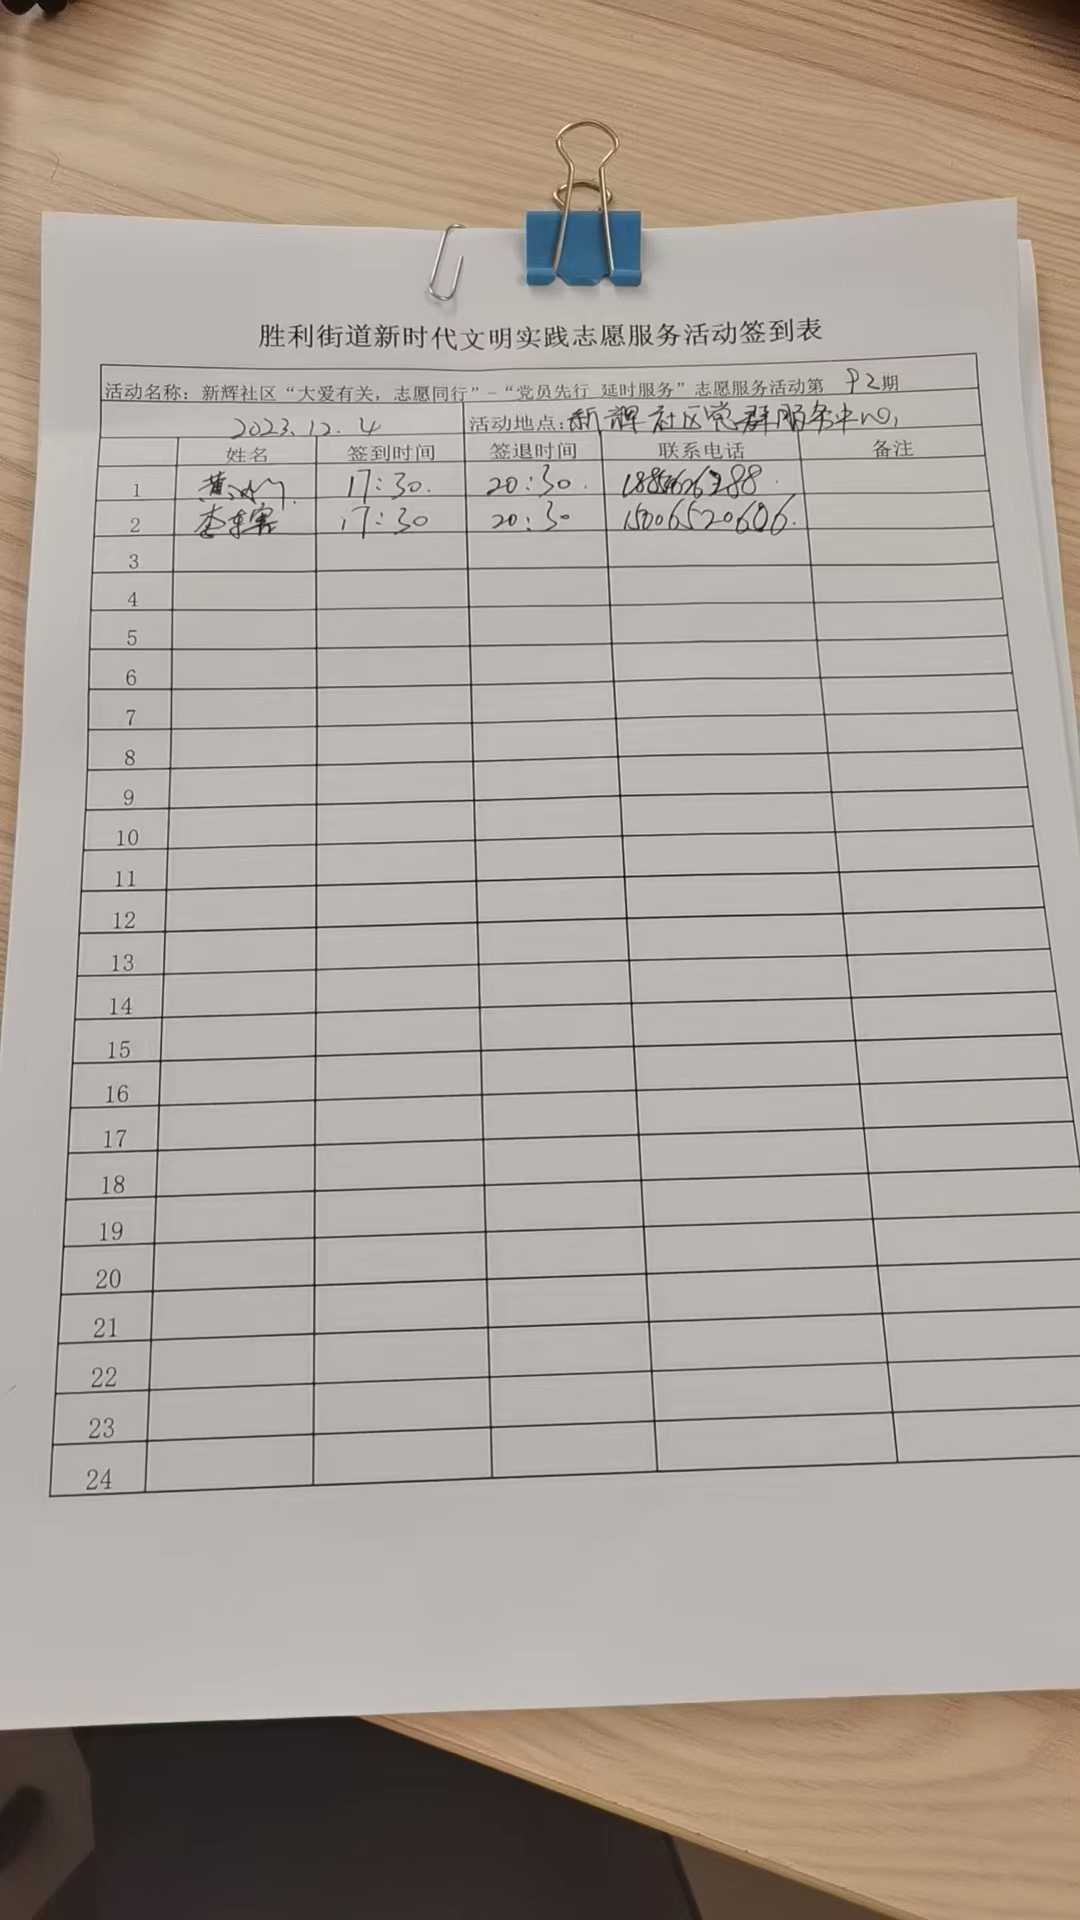 胜利街道新时代文明实践志愿服务活动签到表
活动名称：新辉社区“大爱有关，志愿同行”-“党员先行 延时服务”志愿服务活动第 92期
2023.12.4 活动地点：新辉社区党群服务中心
姓名 签到时间 签退时间 联系电话 备注
1 黄 17:30. 20:30.
2 李 17:30 20:30 15006520606.
3
4
5
6
7
8
9
10
11
12
13
14
15
16
17
18
19
20
21
22
23
24